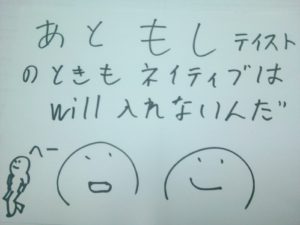 あと もし テイスト
のときも ネイティブは
will 入れないんだ
へー